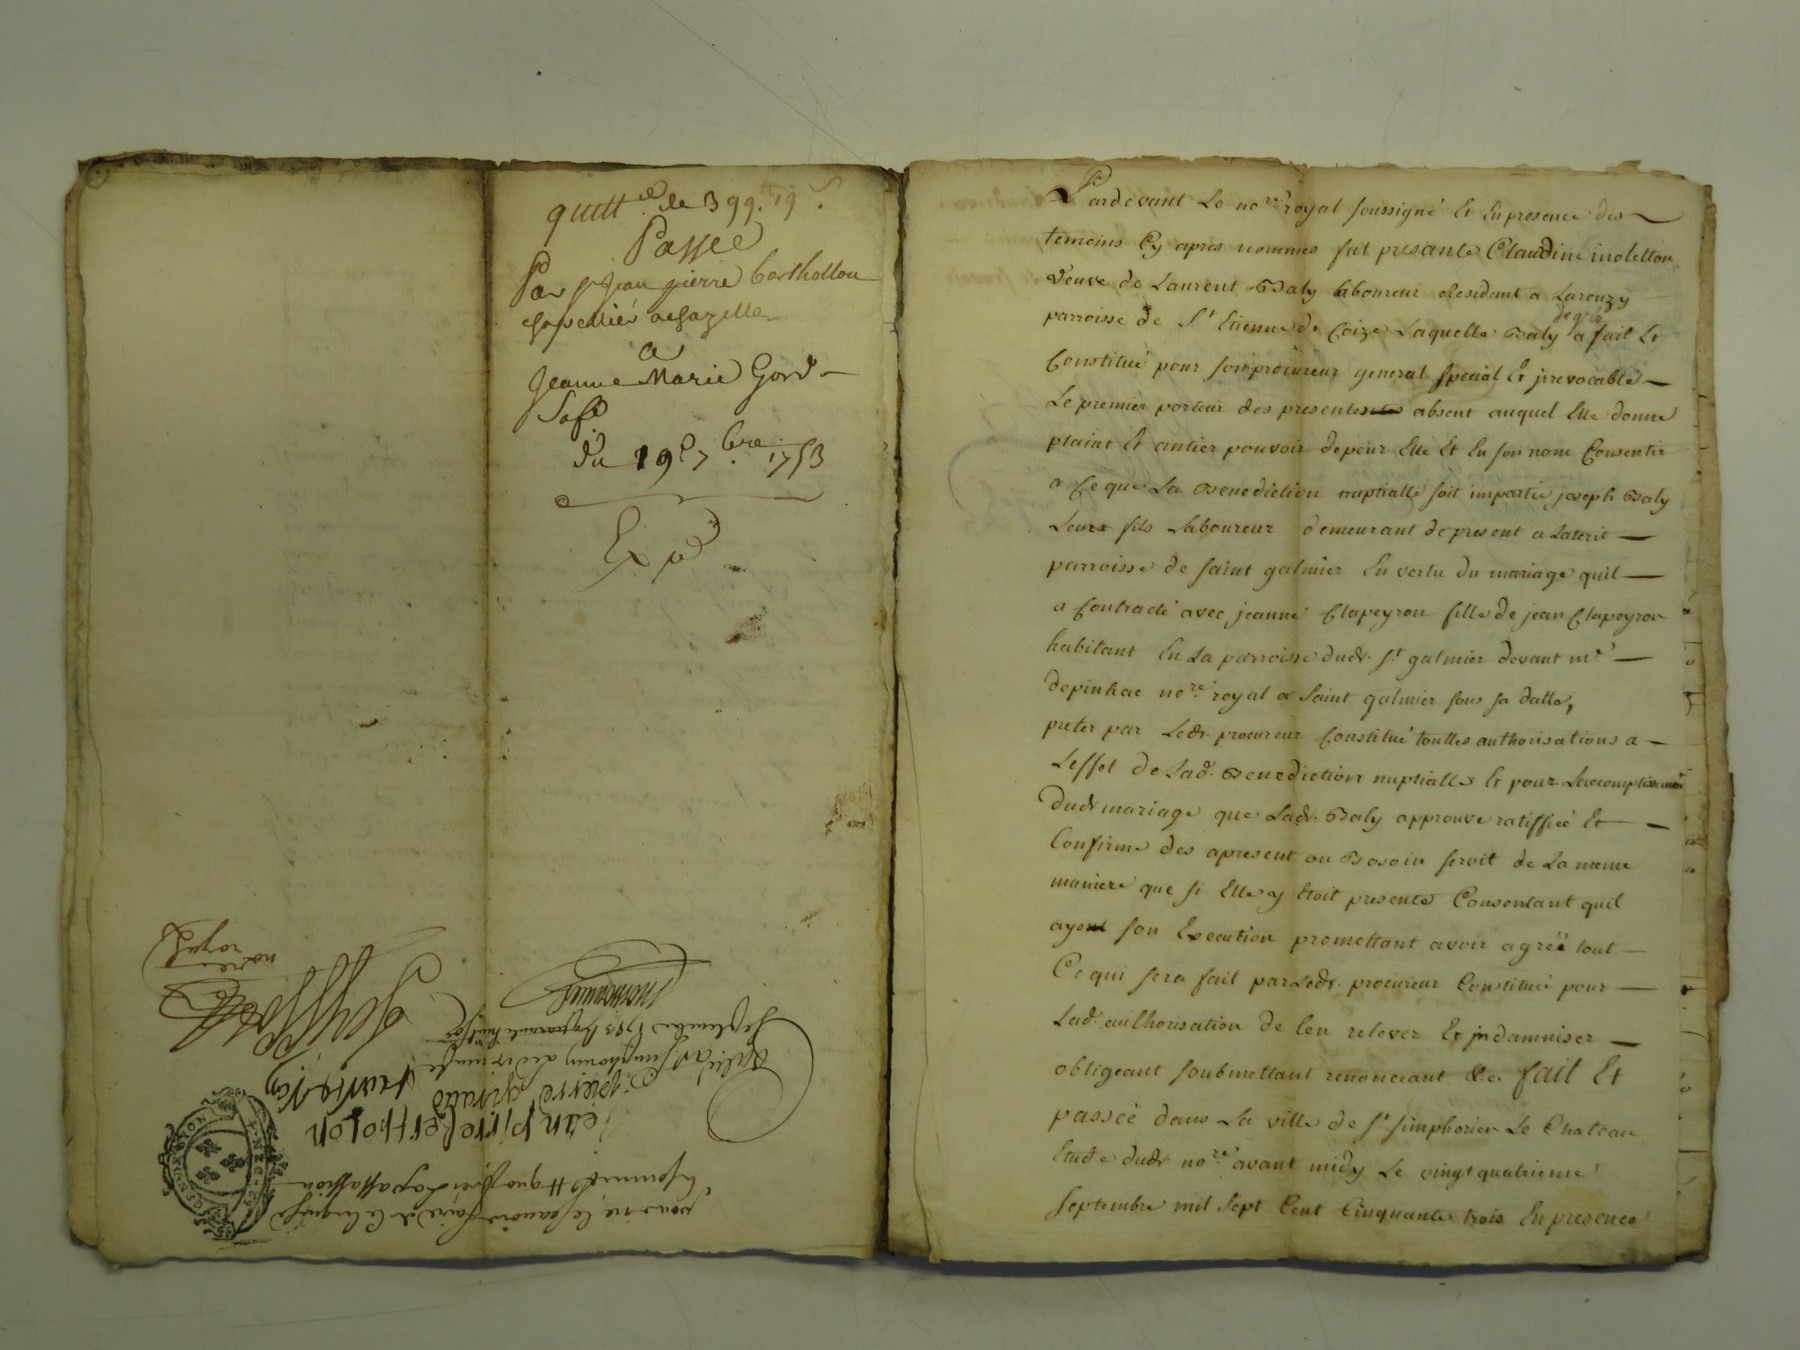 quitt.ce de 399.tt 19 s.
Passée
Par sr jean pierre berthollon
chapellier a chazelles
a
Jeanne Marie Gord
du 19e 7bre 1753
Exp
pour ne le scavoir faire de ce enquis
jean pierre bertholon
pierre girand
septembre 1753
notre
royal
Pardevant Le nore royal soussigné Et En presence des
temoins Cy apres nommes fut presante Claudine violetton
veuve de Laurent Baly laboureur residant a Larouzy
parroisse de St Etienne de Coize Laquelle Baly de gré a fait Et
Constitué pour son procureur general special Et jrrevocable
Le premier porteur des presentes absent auquel Elle donne
plaint Et antier pouvoir de pour Elle Et En son nom Consentir
a Ce que La Benediction nuptialle soit impartie joseph Baly
Leur fils Laboureur demeurant de present a Laterit
parroisse de saint galmier En vertu du mariage quil
a Contracté avec jeanne Clapeyron fille de jean Clapeyron
habitant En La parroisse dudt. st galmier devant me
depinhac nore royal a saint galmier sous sa datte,
preter par Ledt procureur Constitué touttes authorisations a
Leffet de Lad. Benediction nuptialle Et pour Laccomplissement
dudt mariage que Ladt. Baly approuve ratiffie Et
Confirme des apresent au Besoin seroit de La meme
maniere que si Elle y Etoit presente Consentant quil
ayent son Execution promettant avoir agréé tout
Ce qui sera fait par Ledt. procureur Constitué pour
Lad. authorisation de Len relever Et jndamniser
obligeant soubmettant renonceant &c. fait Et
passée dans La ville de st simphorien Le Chateau
Etude dudt nore avant midy Le vingt quatrieme
septembre mil sept Cent Cinquante trois En presence